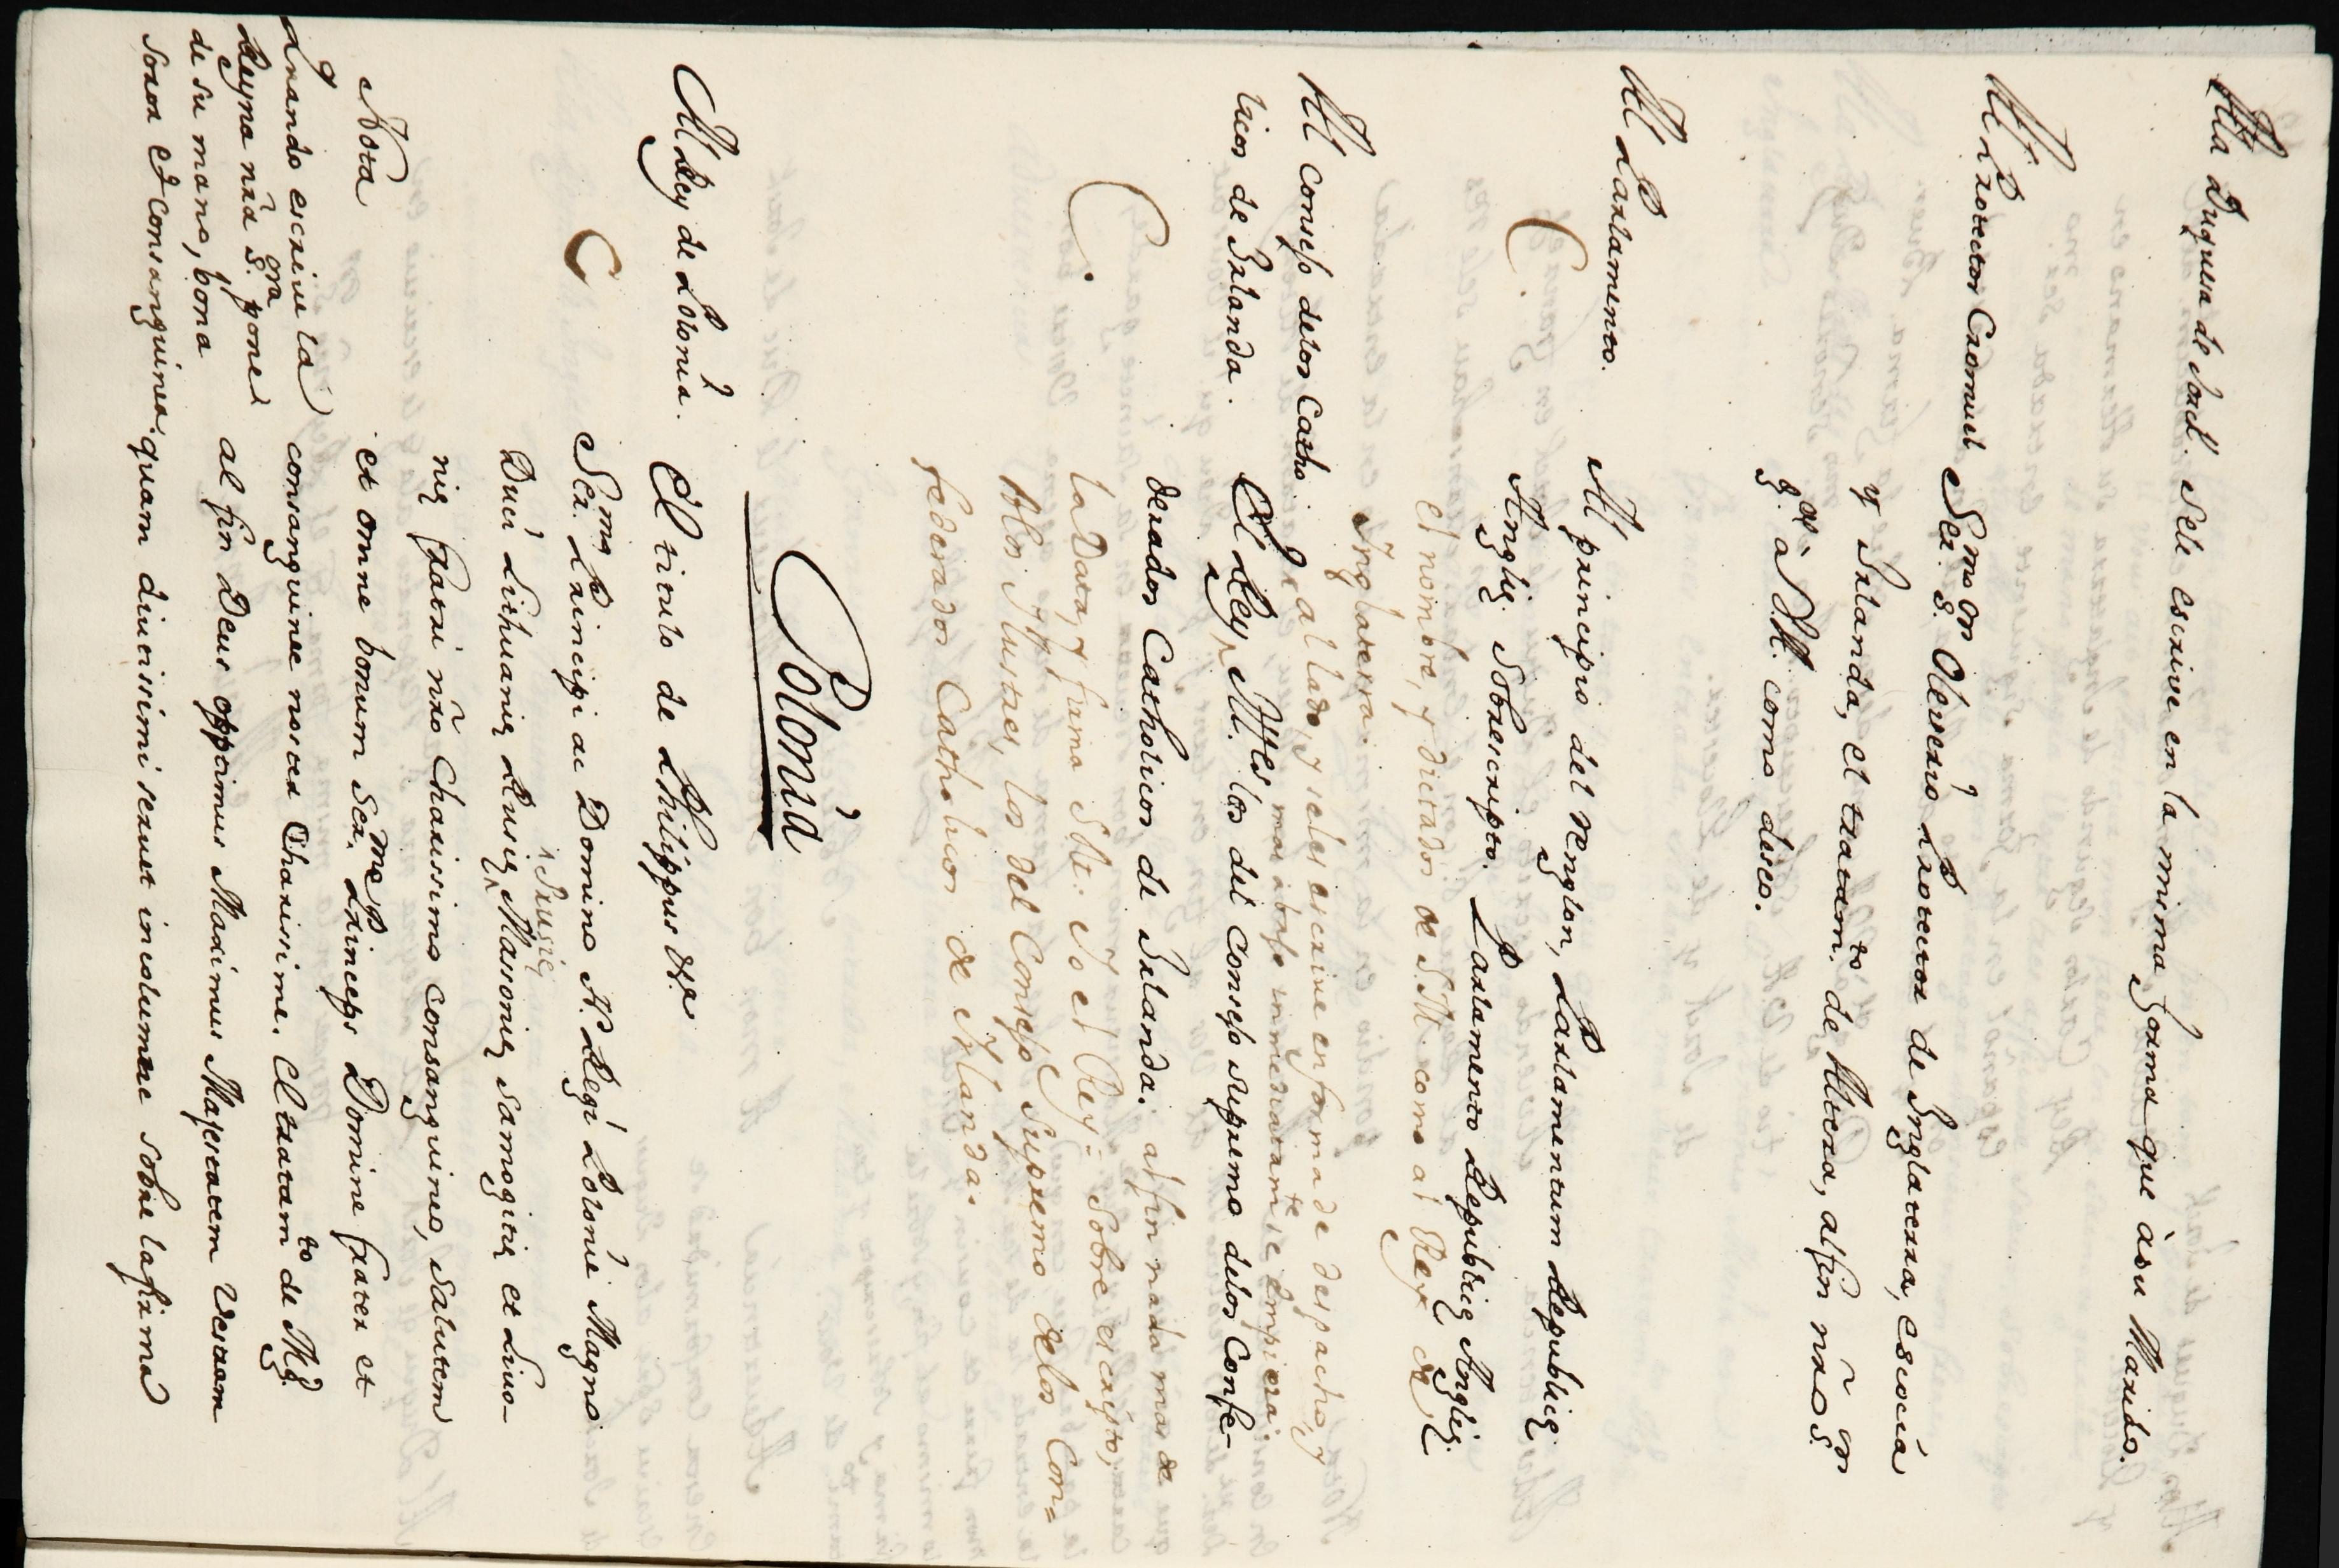 Ala Duquesa de Yorck. Sele escrive en la misma forma que àsu Marido.
Al Protector Cromuel
Ser.mo S.or Oliverio Protector de Inglaterra, escocia
y Irlanda, el tratam.to de Alteza, al fin nr̃o S.or
g.de à V.A. como deseo.
Al Parlamento.
Al principio del renglon, Parlamentum Republicę
Anglię. Sobrescripto. Parlamento Republicę Anglię
el nombre, y dictados de S.M. como al Rey de
Inglaterra.
Al Consejo delos Catho
licos de Irlanda.
al lado, y seles escrive en forma de despacho, y
mas abajo inmediatam.te se empieza:
El Rey, Ill.es los del Consejo supremo delos Confe-
derados Catholicos de Irlanda: al fin nada mas de
la Data, y firma S.M: Yo el Rey = Sobre escripto,
Alos Ilustres, los del Consejo Supremo delos Con=
federados Catholicos de Irlanda.
Polonia
Al Rey de Polonia.
El titulo de Philippus &a
Ser.mo Principi ac Domino N. Regi Polonie Magno
Duci Lithuanię Rusię, Prusię, Massonię, Samogitię et Livo-
nię fratri nr̃o Charissimo consanguineo, Salutem
et omne bonum Ser.me Princeps Domine frater et
consanguinee noster Charissime. El tratam.to de Mg.d
al fin Deus Opptimus Maximus Majestatem Vestram
quam diutissimi servet incolumene sobre la firma
Nota
Quando escrive la
Reyna nr̃a S.ora pone
de su mano, bona
soror et consanguinea.